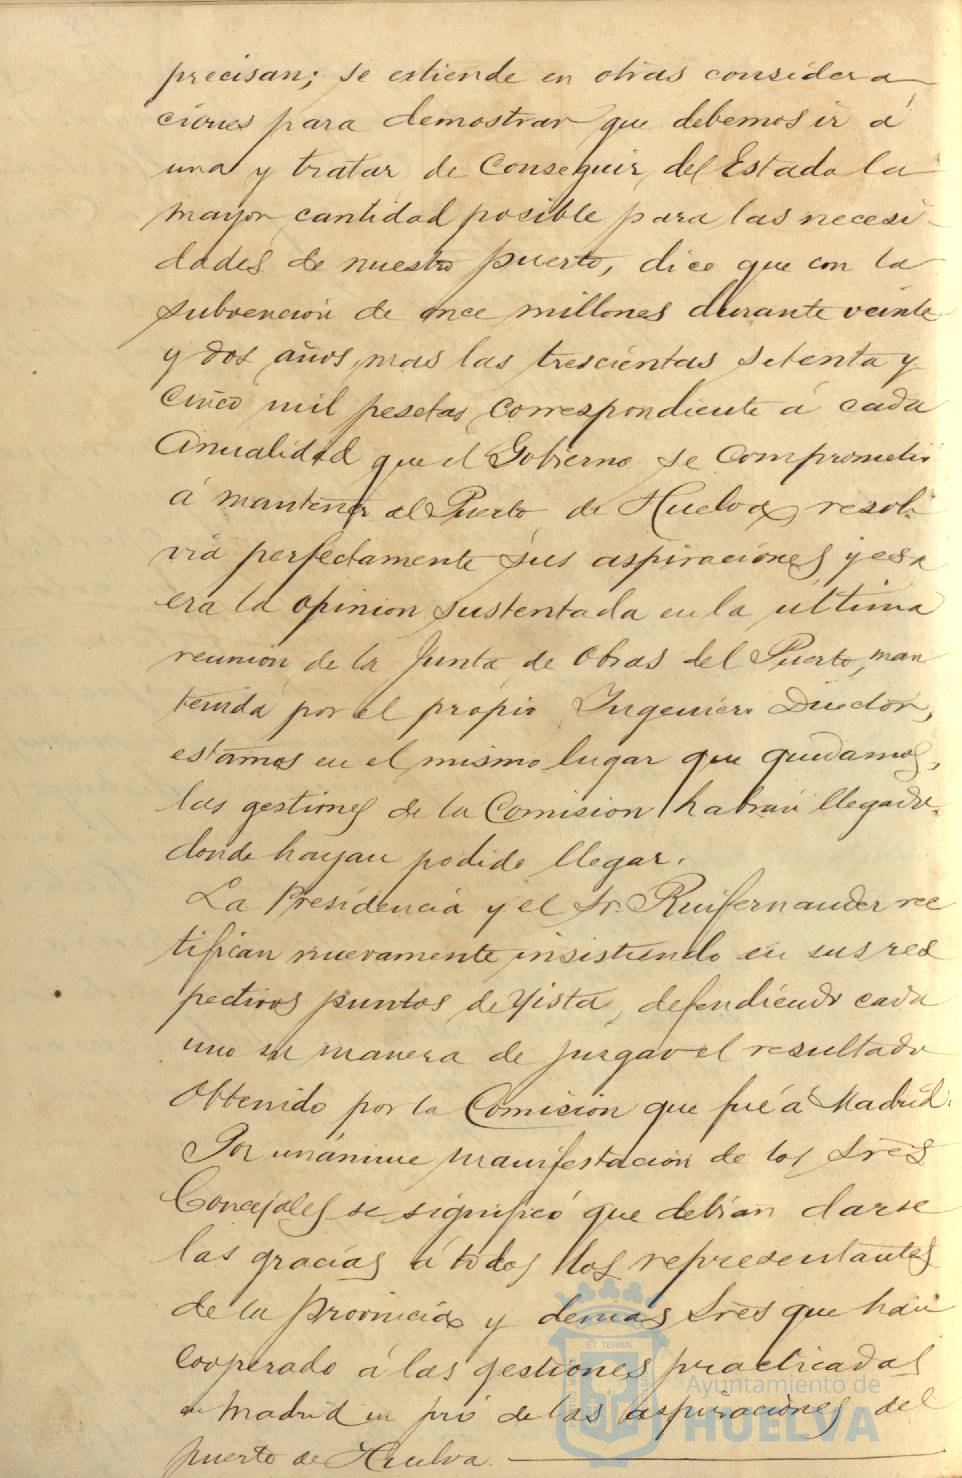 precisan; se extiende en otras considera
ciones para demostrar que debemos ir á
una y tratar de conseguir, del Estado la
mayor cantidad posible para las necesi-
dades de nuestro puerto, dice que con la
subvención de once millones durante veinte
y dos años, mas las trescientas setenta y
cinco mil pesetas correspondiente á cada
anualidad que el Gobierno se comprometió
á mantener al Puerto de Huelva, resol-
via perfectamente sus aspiraciones y esa
era la opinion sustentada en la última
reunión de la Junta de Obras del Puerto, man
tenida por el propio Ingeniero Director,
estamos en el mismo lugar que quedamos,
las gestiones de la Comision habrán llegado
donde hayan podido llegar.
La Presidencia y el Sr. Ruifernandez rec
tifican nuevamente insistiendo en sus res
pectivos puntos de vista, defendiendo cada
uno su manera de juzgar el resultado
obtenido por la Comisión que fué á Madrid.
Por unánime manifestación de los Sres
Concejales se significó que debian darse
las gracias á todos los representantes
de la provincia y demas Sres que han
cooperado á las gestiones practicadas
en Madrid en pró de las aspiraciones del
puerto de Huelva.
ET TERRÆ
Ayuntamiento de
HUELVA